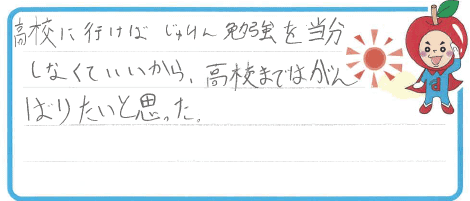 高校に行けばじゅけん勉強を当分
しなくていいから、高校まではがん
ばりたいと思った。